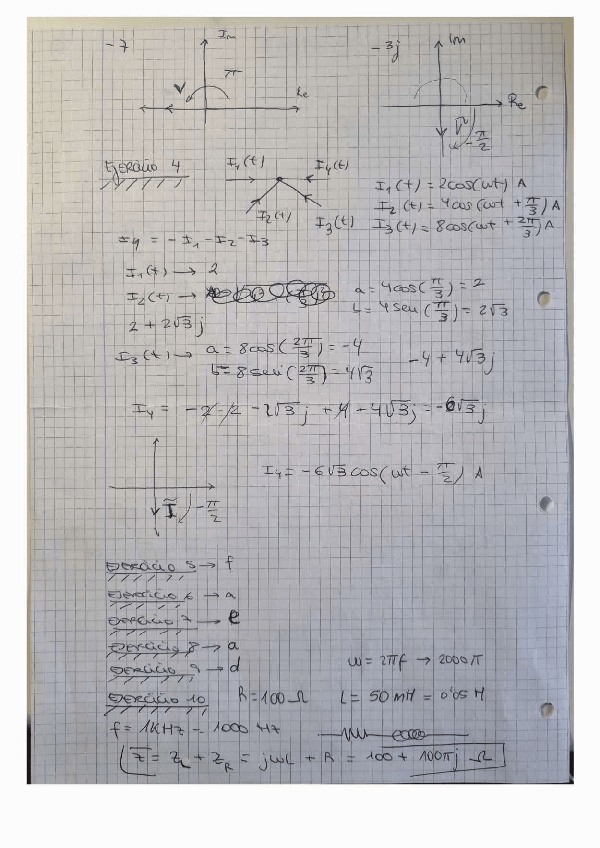 -7 Im -3j Im
V π Re Re
V -π/2
Ejercicio 4 I1(t) I4(t)
I2(t) I3(t)
I1(t) = 2cos(ωt) A
I2(t) = 4cos(ωt + π/3) A
I3(t) = 8cos(ωt + 2π/3) A
I4 = - I1 - I2 - I3
I1(t) → 2
I2(t) → a = 4cos(π/3) = 2
2 + 2√3 j b = 4 sen(π/3) = 2√3
I3(t) → a = 8cos(2π/3) = -4 -4 + 4√3 j
b = 8 sen(2π/3) = 4√3
I4 = -2 -2 - 2√3 j + 4 - 4√3 j = -6√3 j
I -π/2 I4 = -6√3 cos(ωt - π/2) A
Ejercicio 5 → f
Ejercicio 6 → a
Ejercicio 7 → e
Ejercicio 8 → a
Ejercicio 9 → d ω = 2πf → 2000π
Ejercicio 10 R = 100 Ω L = 50 mH = 0'05 H
f = 1KHz = 1000 Hz
Z = ZL + ZR = jωL + R = 100 + 100πj Ω